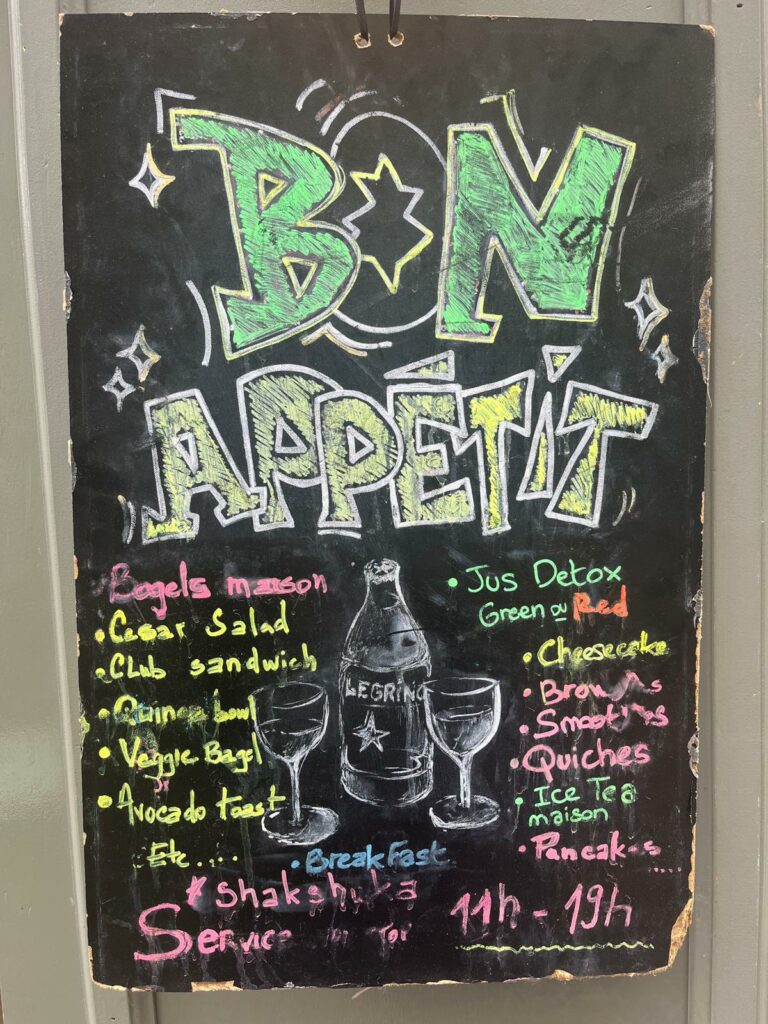 BON
APPÉTIT
Bagels maison
• Cesar Salad
• Club sandwich
• Quinoa bowl
• Veggie Bagel
• Avocado toast
Etc.....
LEGRING
• Jus Detox
Green ou Red
• Cheesecake
• Brownies
• Smoothies
• Quiches
• Ice Tea
maison
• Pancakes
.....
• BreakFast
# shakshuka
Service
11h - 19h